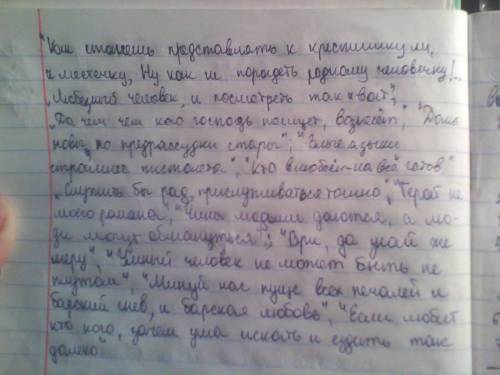 "Как станешь представлять к крестишку ли,
к местечку, Ну как не порадеть родному человечку!..
"Любезный человек, и посмотреть так хват",
"Да чем кого господь поищет, вознесёт", "Дома
новы, но предрассудки стары";
"Кто влюблён-на всё готов"
"Служить бы рад, прислуживаться тошно", "Герой не
моего романа", "Чины людьми даются, а лю-
ди могут обмануться"; "Ври, да знай же
меру"; "Умный человек не может быть не
плутом", "Минуй нас пуще всех печалей и
барский гнев, и барская любовь", "Если любит
кто кого, зачем ума искать и ездить так
далеко"